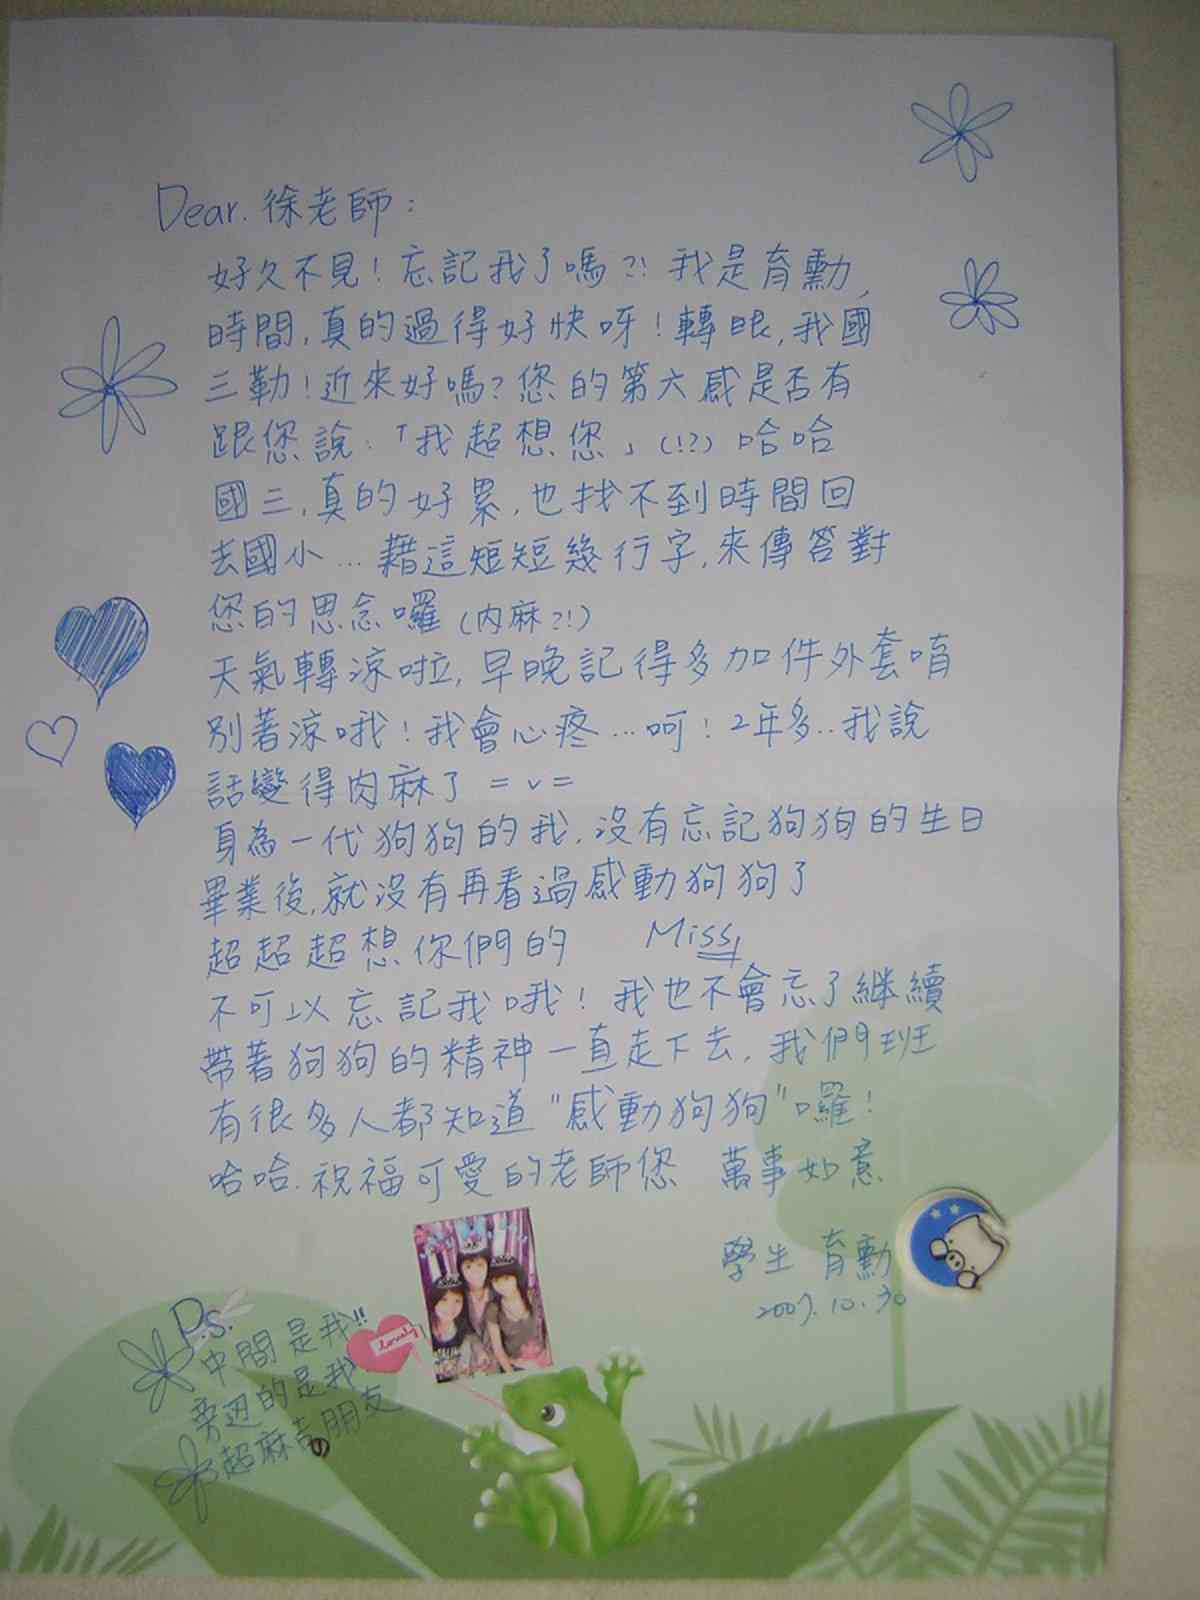 Dear. 徐老師：
好久不見！忘記我了嗎?! 我是育勳，
時間，真的過得好快呀！轉眼，我國
三勒！近來好嗎？您的第六感是否有
跟您說：「我超想您」(!?) 哈哈
國三，真的好累，也找不到時間回
去國小…藉這短短幾行字，來傳答對
您的思念囉 (內麻?!)
天氣轉涼啦，早晚記得多加件外套唷
別著涼哦！我會心疼…呵！2年多..我說
話變得肉麻了 =v=
身為一代狗狗的我，沒有忘記狗狗的生日
畢業後，就沒有再看過感動狗狗了
超超超想你們的 Miss
不可以忘記我哦！我也不會忘了繼續
帶著狗狗的精神一直走下去，我們班
有很多人都知道"感動狗狗"囉！
哈哈.祝福可愛的老師您 萬事如意
學生 育勳
2007.10.30
P.s.
中間是我!!
旁边的是我
超麻吉の朋友
lovely